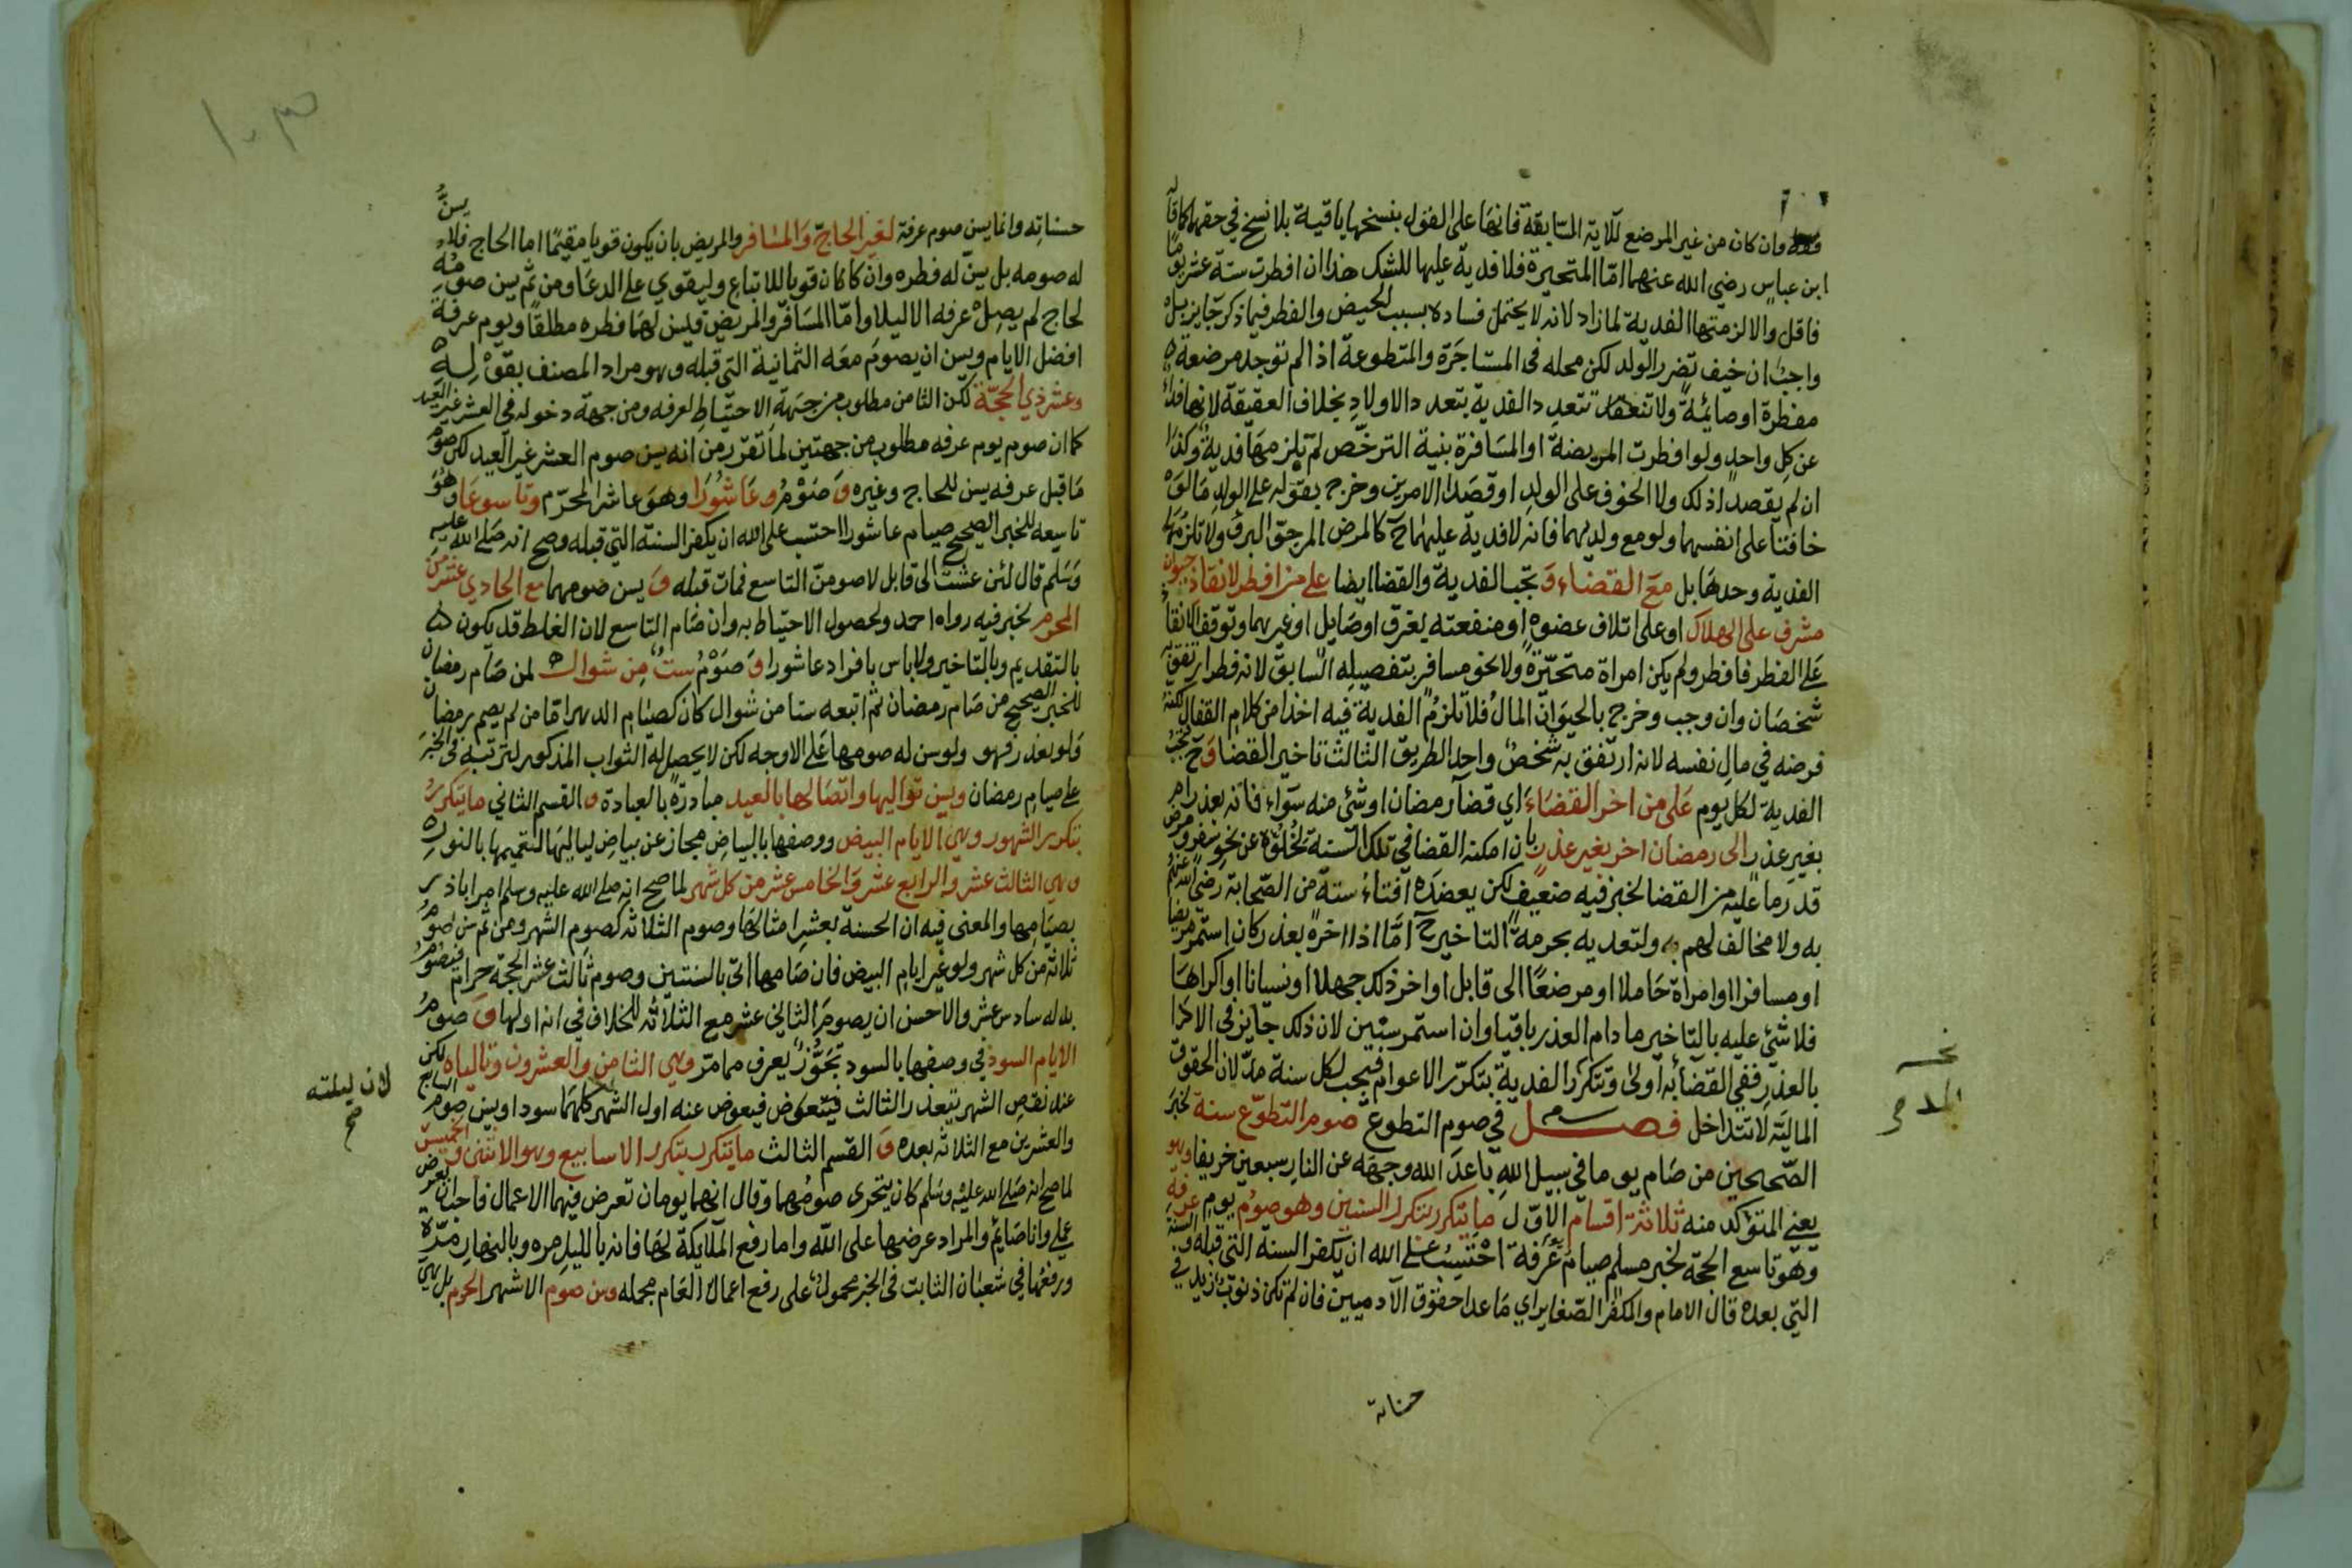 وان كان من غير المرضع للآية السابقة فانها على القول بنسخها باقية بلا نسخ في حقهما كما قاله
ابن عباس رضي الله عنهما امّا المتحيرة فلا فدية عليها للشك هذا ان افطرت ستة عشر يومًا
فاقل والا لزمتها الفدية لما زاد لانه لا يحتمل فساده بسبب الحيض والفطر فيما ذكر جايز بل
واجب ان خيف تضرر الولد لكن محله في المستاجَرة والمتطوعة اذا لم توجد مرضعة
مفطرة او صائمة ولا تتعدد الفدية بتعدد الاولاد بخلاف العقيقة لانها فداء
عن كل واحد ولو افطرت المريضة او المسَافرة بنية الترخّص لم تلزمها فدية وكذا
ان لم يقصدا ذلك ولا الخوف على الولد او قصَدا الامرين وخرج بقوله على الولد مَا لوْ
خافتا على انفسهما ولو مع ولديهما فانه لا فدية عليهما ح كالمرض المرجوّ البرؤ ولا تلزمهَا
الفدية وحدهَا بل معَ القضاء وَ تجب الفدية والقضا ايضا على من افطر لانقاذ حيوان
مشرف على الهلاك او على اتلاف عضوه او منفعته بغرق او صَايل او غيرهما وتوقف الانقاذ
عَلى الفطر فافطر ولم يكن امراة متحيّرة ولا نحو مسافر بتفصيله السّابق لانه فطر ارتفق به
شخصَان وان وجب وخرج بالحيوَان المالُ فلا تلزمُ الفدية فيه اخذا من كلام القفال لكنه
فرضه في مال نفسه لانه ارتفق به شخصٌ واحد الطريق الثالث تاخير القضا وَح تجب
الفدية لكل يوم عَلى من اخر القضَاءَ اي قضآ رمضان او شئ منه سَوآء فاته بعذر ام
بغير عذر الى رمضان اخر بغير عذر بان امكنه القضا في تلك السّنة لخلوّه عن نحو سفر ومرض
قدر ما عليه من القضا لخبر فيه ضعيف لكن يعضده افتاءُ ستة من الصّحابة رضي الله عنهم
به ولا مخالف لهم ولتعديه بحرمة التاخير ح امَّا اذا اخره بعذر كان استمر مريضا
او مسافرا او امراة حَاملا او مرضعًا الى قابل او اخر ذلك جهلا او نسيانا او اكراهَا
فلا شئ عليه بالتاخير ما دام العذر باقيا وان استمر سنين لان ذلك جَايز في الاداء
بالعذر ففي القضآ به اولى وتتكرّر الفدية بتكرّر الاعوام فيجب لكل سنة مدّ لان الحقوق
الماليّة لا تتداخل فصـــل في صوم التطوع صوم التطوّع سنة لخبر
الصّحيحين من صَام يوما في سبيل الله باعدَ الله وجهَه عن النار سبعين خريفا وهو
يعني المتؤكد منه ثلاثة اقسام الاوّل ما يتكرر بتكرر السنين وهو صوْم يوم عرفة
وَهو تاسع الحجة لخبر مسلم صيامُ يوم عَرَفة احْتسِبُ على الله ان يكفر السنة التي قبله والسنة
التي بعده قال الامام والمكفر الصّغاير اي مَا عدا حقوق الآدميين فان لم تكن ذنوب زيد في
حسناته
حسناتِه وانما يسن صوم عرفة لغير الحاجّ وَالمسَافر والمريض بان يكون قويا مقيمًا اما الحاج فلا يسنُّ
له صومه بل يسنّ له فطره وان كان قويا للاتباع وليقوي على الدعَا ومن ثم يسن صومُه
لحاج لم يصلْ عرفه الا ليلا وامّا المسَافر والمريض فيسن لهمَا فطره مطلقًا ويوم عرفة
افضل الايام ويسن ان يصومَ معَه الثمانية التي قبله وهو مراد المصنف بقوْله
وعشر ذي الحجّة لكن الثامن مطلوب من جهَة الاحتياط لعرفه ومن جهة دخوله في العشر غير العيد
كما ان صوم يوم عرفه مطلوب من جهتين لما تقرّر من انه يسن صوم العشر غير العيد لكن صوم
مَا قبل عرفه يسن للحاج وغيره وَ صَوْمُ عَاشُورَا وهوَ عاشر المحرّم وتاسوعَا وَهُوَ
تاسعه للخبر الصحيح صيام عاشورا احتسب على الله ان يكفر السنة التي قبله وصح انه صَلى الله عليه
وَسَلم قال لئن عشت الى قابل لاصومنّ التاسع فمات قبله وَ يسن صَومهما مع الحادي عشر من
المحرم لخبر فيه رواه احمد ولحصول الاحتياط به وان صَام التاسع لان الغلط قد يكون
بالتقديم وبالتاخير ولا باس بافراد عاشورا وَ صَوْمُ ستٌ من شوال لمن صَام رمضان
للخبر الصحيح من صَام رمضان ثم اتبعه ستا من شوال كان كصيام الدهر امّا من لم يصم رمضان
وَلو بعذر فهو ولو سن له صومها عَلى الاوجه لكن لا يحصل له الثواب المذكور لترتبه في الخبر
على صيام رمضان ويسن تواليها واتصَالها بالعيد مبادرة بالعبادة و القسم الثاني ما يتكررُ
بتكرر الشهور وهي الايام البيض ووصفها بالبياض مجاز عن بياض لياليهَا لتعميمها بالنور
وهي الثالث عشر والرابع عشر وَالخامس عشر من كل شهر لما صح انه صلى الله عليه وسلم امر اباذر
بصيَامها والمعنى فيه ان الحسنة بعشر امثالهَا وصوم الثلاثه كصوم الشهر ومن ثم سن صومُ
ثلاثة من كل شهر ولو غير ايام البيض فان صَامها اتى بالسنتين وصوم ثالث عشر الحجّة حرام فيصومُ
بدله سادس عشر والاحسن ان يصومَ الثاني عشر مع الثلاثه للخلاف في انه اولها وَ صومُ
الايام السود في وصفها بالسود تجَوُّز يعرف مما مرّ وهي الثامن والعشرون وتالياه لكن
عند نقص الشهر يتعذر الثالث فيعوض عنه اول الشهر كلهمَا سود او يسن صوم السابع
لان ليلته
صح
والعشرين مع الثلاثه بعده وَ القسم الثالث ما يتكرر بتكرر الاسابيع وهو الاثنين والخميس
لما صح انه صَلى الله عليْه وسَلم كان يتحرى صومُهما وقال انهما يومان تعرض فيهما الاعمال فاحب ان يعرض
عملي وانا صَايم والمراد عرضها على الله واما رفع الملآيكة لهَا فانه بالليل مره وبالنهار مَرّة
ورفعُها في شعبان الثابت في الخبر محمولٌ على رفع اعمال العَام مجمله وسن صوم الاشهر الحرم بل هي
١٠٣